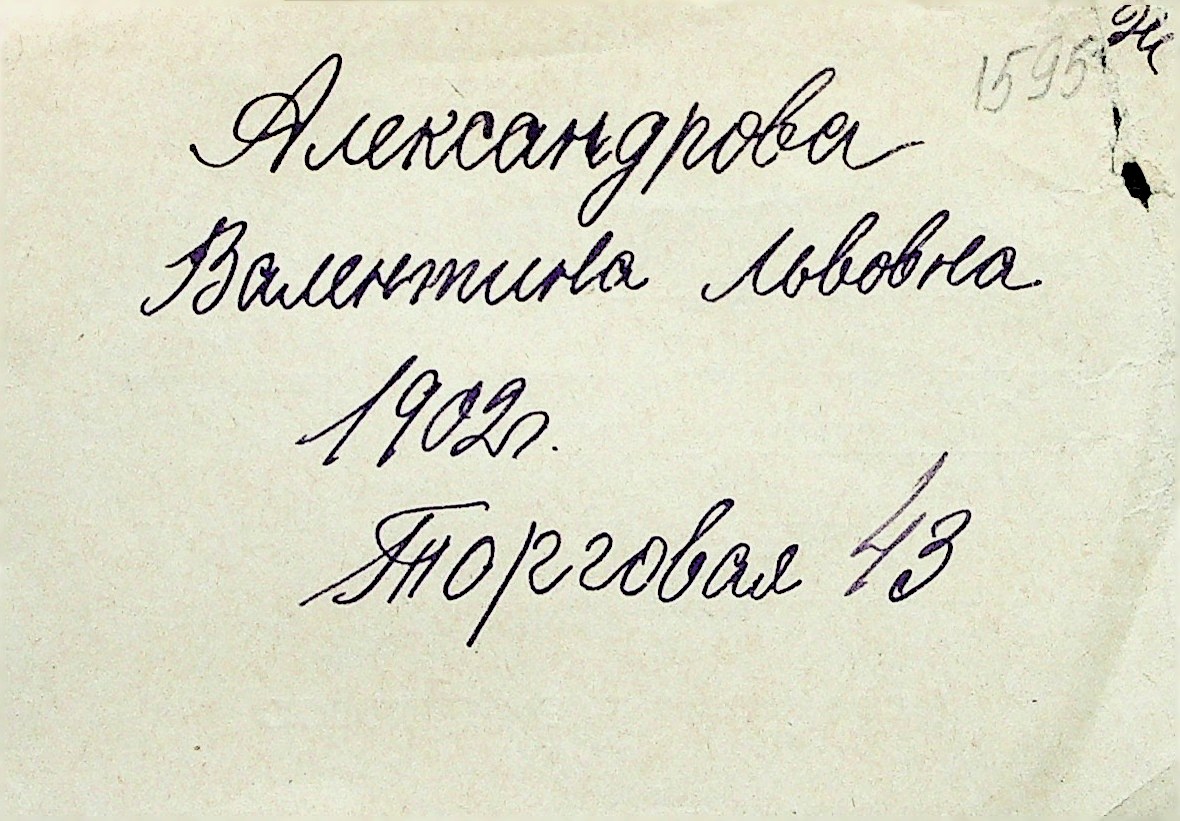 1595
Александрова
Валентина Львовна
1902г.
Торговая 43